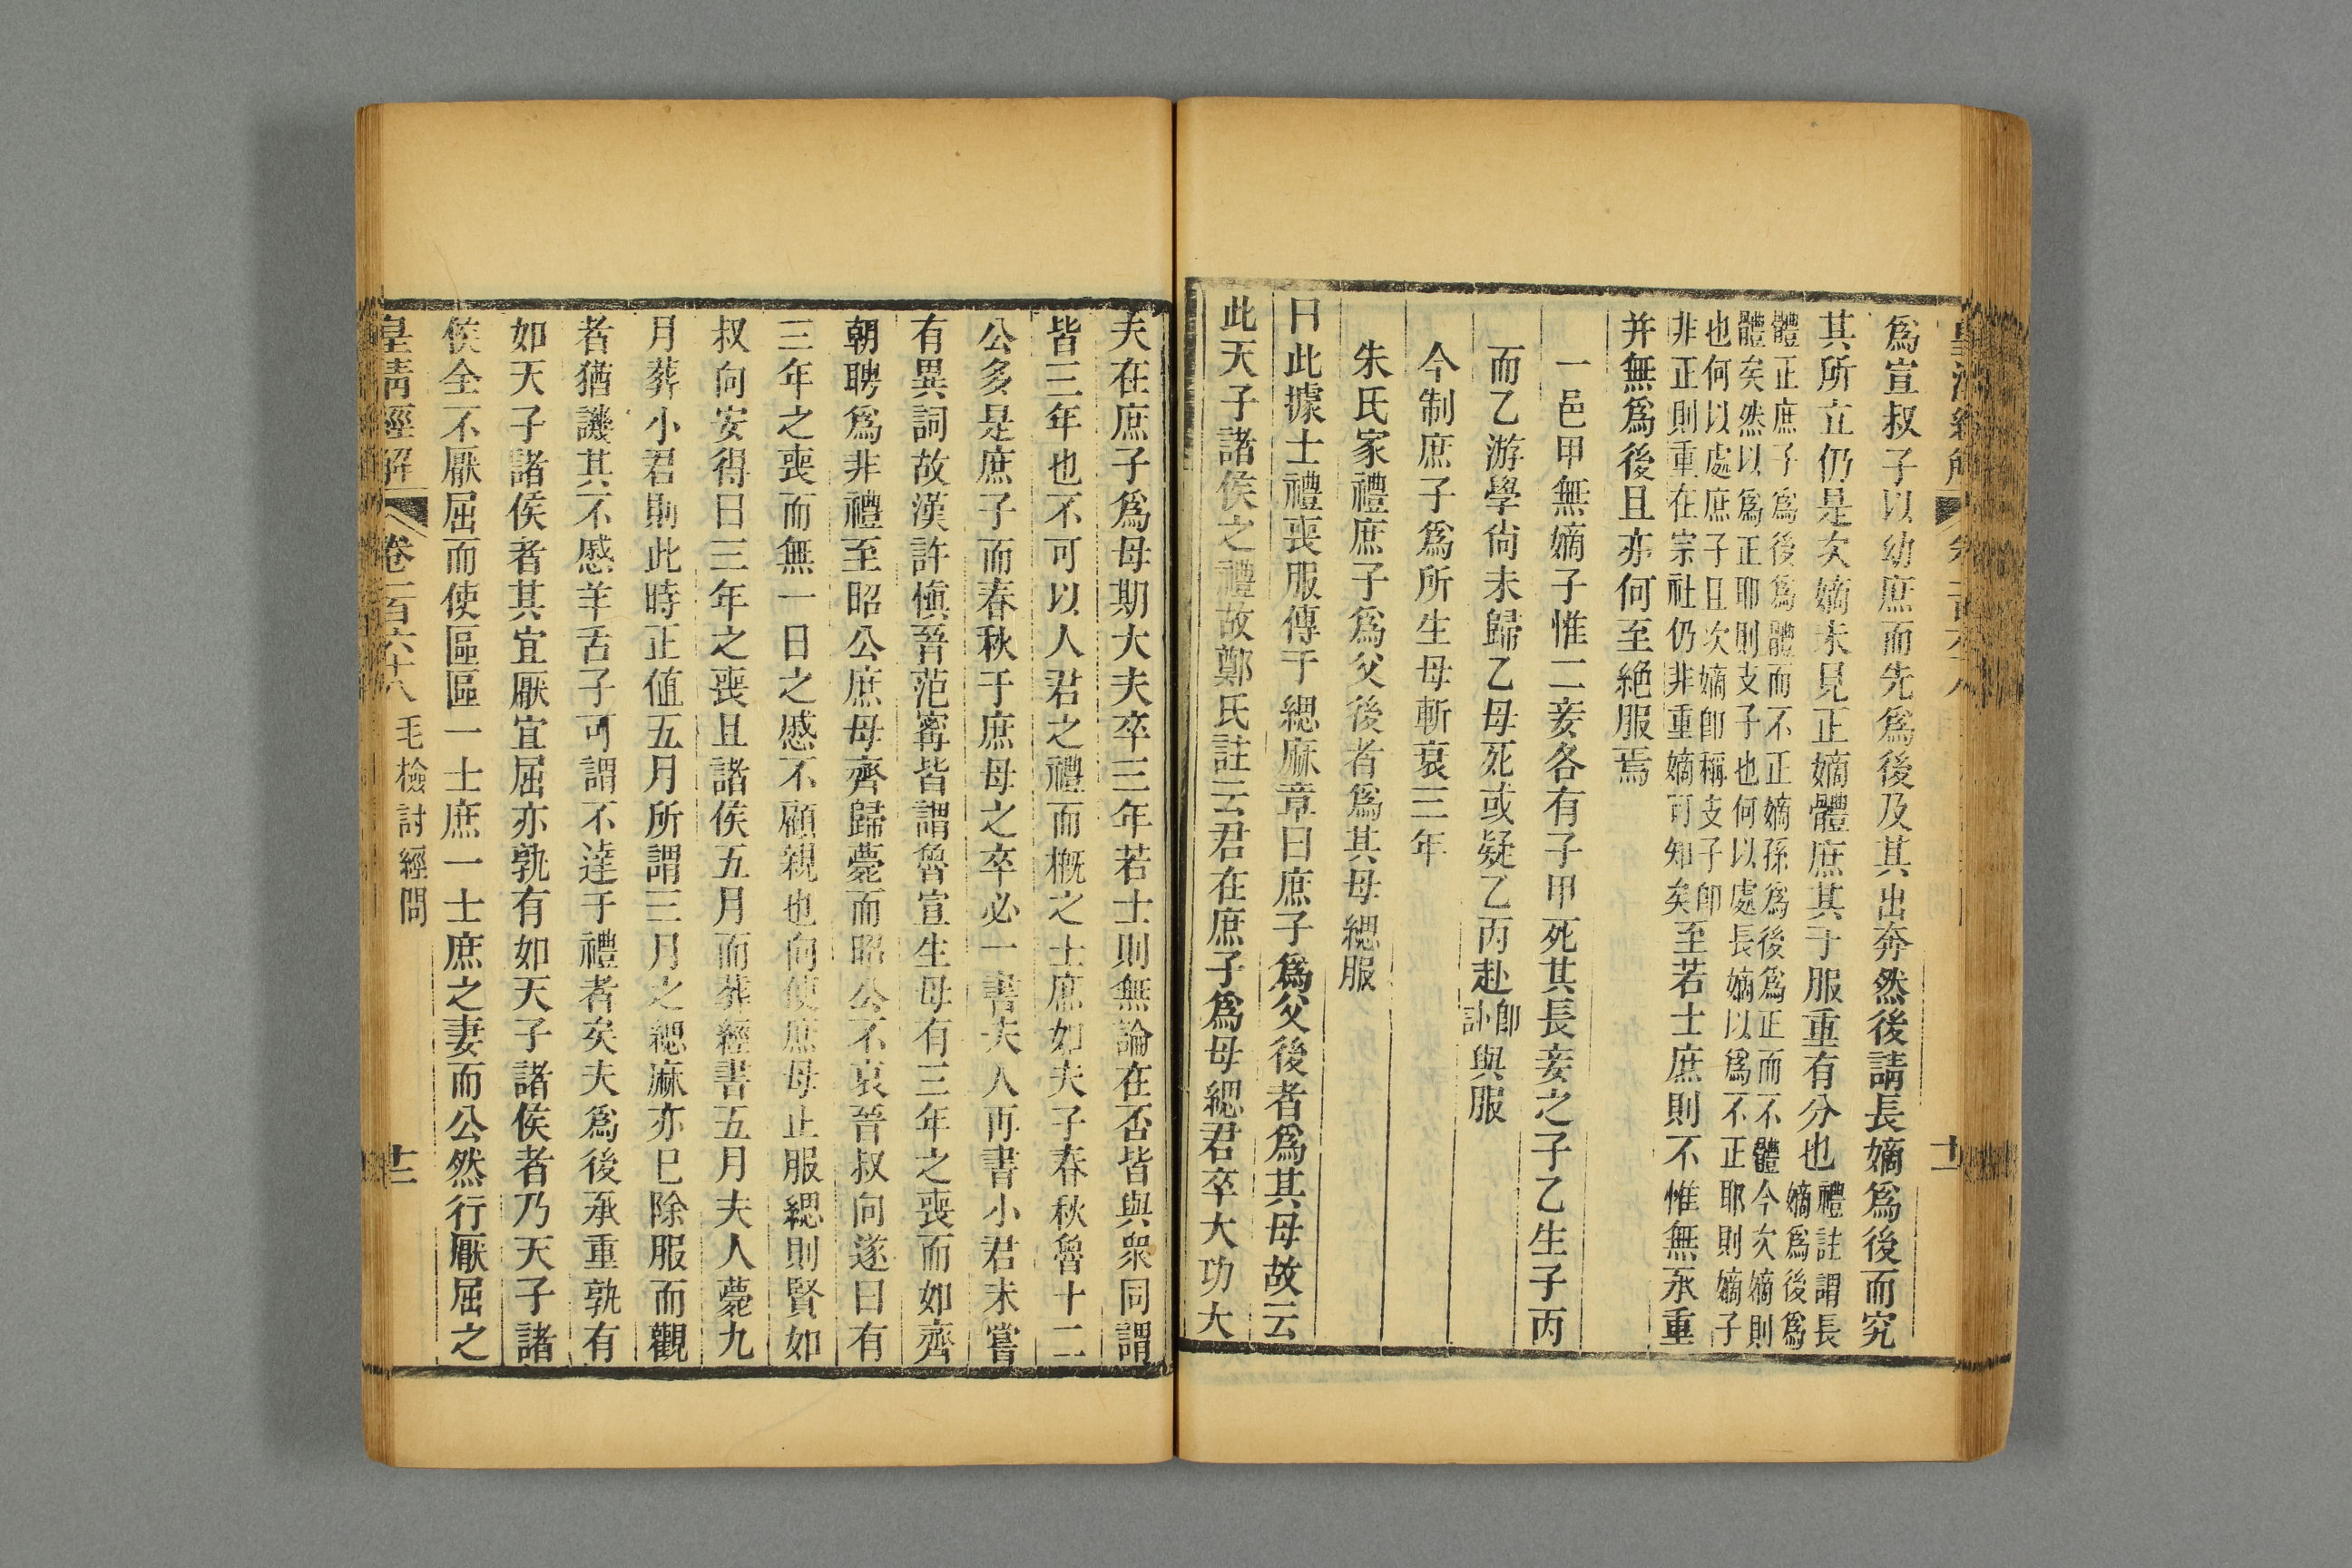 皇清經解 卷一百六十八 十一
爲宣叔子以幼庶而先爲後及其出奔然後請長嫡爲後而究
其所立仍是次嫡未見正嫡體庶其于服重有分也禮註謂長
嫡爲後爲
體正庶子爲後爲體而不正嫡孫爲後爲正而不體今次嫡則
體矣然以爲正耶則支子也何以處長嫡以爲不正耶則嫡子
也何以處庶子且次嫡卽稱支子卽
非正則重在宗社仍非重嫡可知矣至若士庶則不惟無承重
并無爲後且亦何至絶服焉
一邑甲無嫡子惟二妾各有子甲死其長妾之子乙生子丙
而乙游學尚未歸乙母死或疑乙丙赴卽訃與服
今制庶子爲所生母斬衰三年
朱氏家禮庶子爲父後者爲其母緦服
曰此據士禮喪服傳于緦麻章曰庶子爲父後者爲其母故云
此天子諸侯之禮故鄭氏註云君在庶子爲母緦君卒大功大
夫在庶子爲母期大夫卒三年若士則無論在否皆與衆同謂
皆三年也不可以人君之禮而槪之士庶如夫子春秋魯十二
公多是庶子而春秋于庶母之卒必一書夫人再書小君未嘗
有異詞故漢許愼晉范甯皆謂魯宣生母有三年之喪而如齊
朝聘爲非禮至昭公庶母齊歸薨而昭公不哀晉叔向遂曰有
三年之喪而無一日之慼不顧親也向使庶母止服緦則賢如
叔向安得曰三年之喪且諸侯五月而葬經書五月夫人薨九
月葬小君則此時正値五月所謂三月之緦麻亦巳除服而觀
者猶譏其不慼羊舌子可謂不達于禮者矣夫爲後承重孰有
如天子諸侯者其宜厭宜屈亦孰有如天子諸侯者乃天子諸
侯全不厭屈而使區區一士庶一士庶之妻而公然行厭屈之
皇清經解 卷一百六十八 毛檢討經問 十二